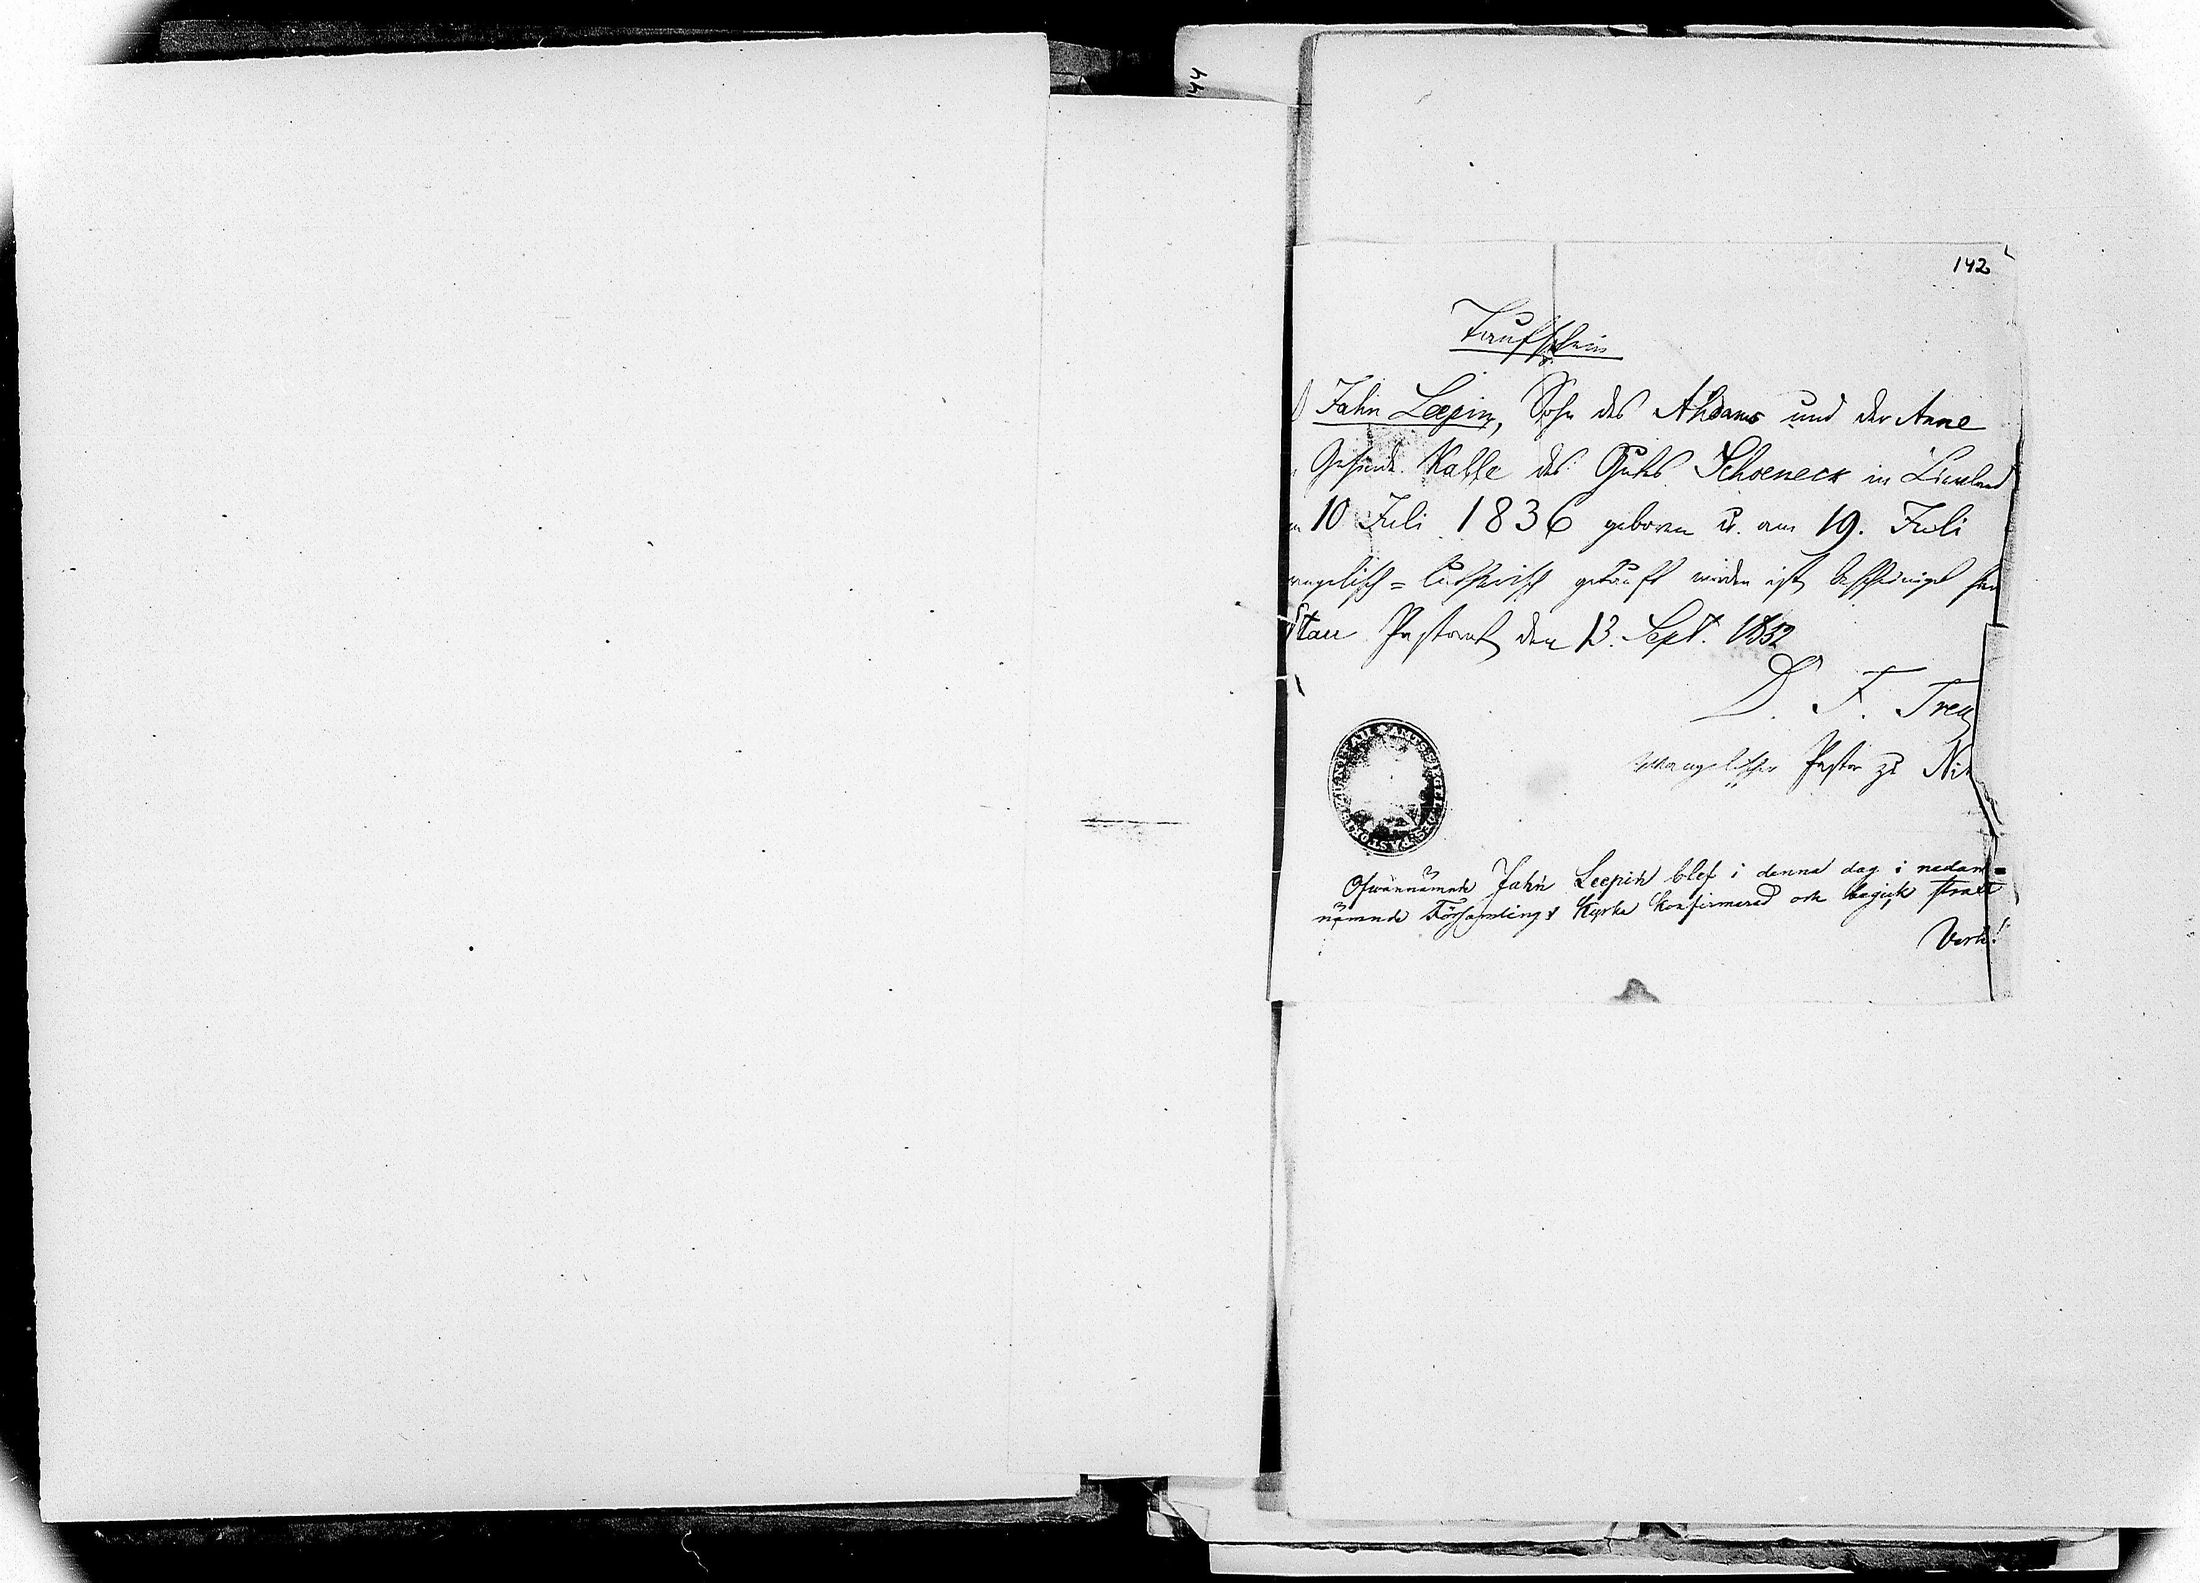 144
142
Taufschein
Jahn Leepin, Sohn des Ahdams und der Anne
Gesinde Kalle des Guts Schoeneck in Lievland
10 Juli 1836 geboren u. am 19. Juli
angelisch = lutherisch getauft worden ist, bescheinigt
Pastorat, den 13. Sept. 1852
D. F. Treu
evangelischer Pastor zu Ni
AMTS SIEGEL DES PASTOR
Ofvannämnde Jahn Leepin blef i denna dag i nedan=
nämnde Församlings Kyrka konfirmerad och begick straxt
Vert!